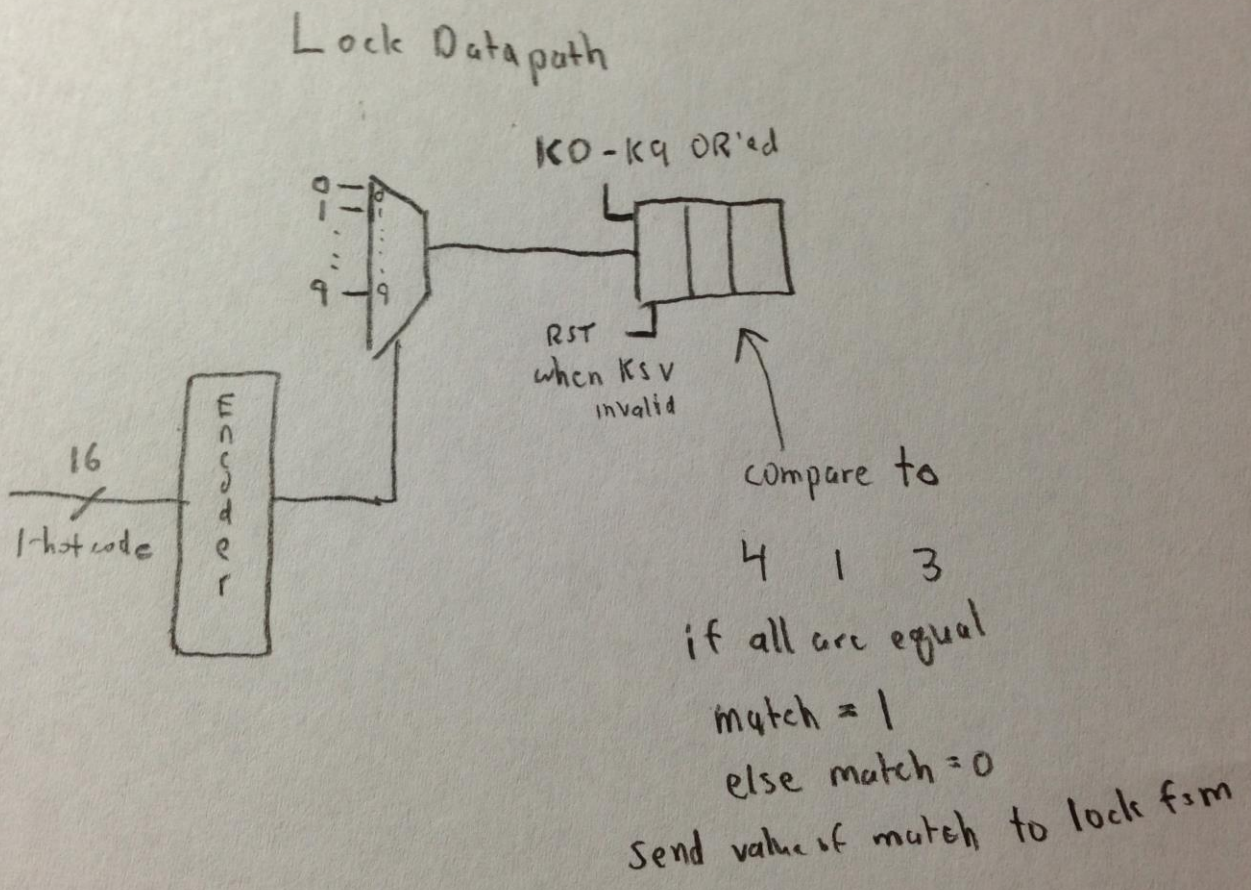 Lock Datapath
K0-K9 OR'ed
0 0
1 1
9 9
RST
when KSV
invalid
Encoder
16
1-hot code
compare to
4 1 3
if all are equal
match = 1
else match = 0
send value of match to lock fsm